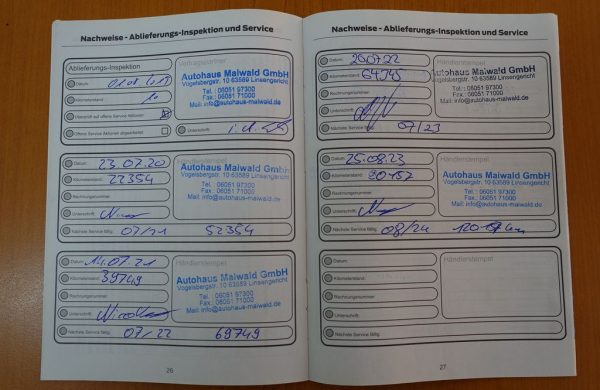 Nachweise - Ablieferungs-Inspektion und Service
Ablieferungs-Inspektion
Vertragspartner
Datum:
Kilometerstand: 10
Überprüft auf offene Service Aktionen
Offene Service Aktionen abgearbeitet
Unterschrift:
Autohaus Maiwald GmbH
Vogelsbergstr. 10 63589 Linsengericht
Tel.: 06051 97300
Fax.: 06051 71000
Mail: info@autohaus-maiwald.de
Datum: 23.07.20
Kilometerstand: 22354
Rechnungsnummer:
Unterschrift:
Nächste Service fällig: 07/21 52354
Händlerstempel
Autohaus Maiwald GmbH
Vogelsbergstr. 10 63589 Linsengericht
Tel.: 06051 97300
Fax.: 06051 71000
Mail: info@autohaus-maiwald.de
Datum: 14.07.21
Kilometerstand: 39749
Rechnungsnummer:
Unterschrift:
Nächste Service fällig: 07/22 69749
Händlerstempel
Autohaus Maiwald GmbH
Vogelsbergstr. 10 63589 Linsengericht
Tel.: 06051 97300
Fax.: 06051 71000
Mail: info@autohaus-maiwald.de
26
Nachweise - Ablieferungs-Inspektion und Service
Datum:
Kilometerstand:
Rechnungsnummer:
Unterschrift:
Nächste Service fällig: 07/23
Händlerstempel
Autohaus Maiwald GmbH
Vogelsbergstr. 10 63589 Linsengericht
Tel.: 06051 97300
Fax.: 06051 71000
Mail: info@autohaus-maiwald.de
Datum: 25.08.23
Kilometerstand:
Rechnungsnummer:
Unterschrift:
Nächste Service fällig: 08/24
Händlerstempel
Autohaus Maiwald GmbH
Vogelsbergstr. 10 63589 Linsengericht
Tel.: 06051 97300
Fax.: 06051 71000
Mail: info@autohaus-maiwald.de
Datum:
Kilometerstand:
Rechnungsnummer:
Unterschrift:
Nächste Service fällig:
Händlerstempel
27